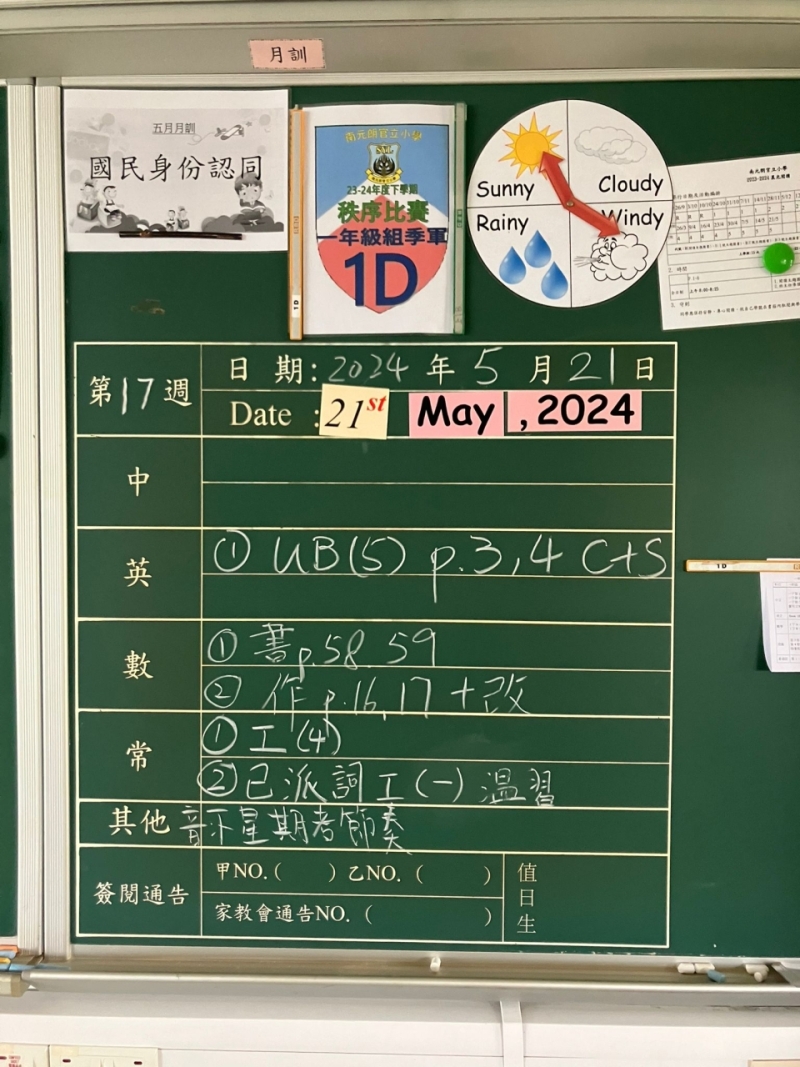 月訓
五月月訓
國民身份認同
南元朗官立小學
23-24年度下學期
秩序比賽
一年級組季軍
1D
Sunny
Cloudy
Rainy
Windy
南元朗官立小學
1D
1D
第17週
日期:2024年5月21日
Date : 21st May, 2024
中
英
① UB(5) p.3,4 C+S
數
① 書p.58.59
② 作 p.16,17 + 改
常
① 工(4)
② 已派詞工(一) 溫習
其他
音下星期考節奏
簽閱通告
甲NO.( ) 乙NO.( )
家教會通告NO.( )
值日生